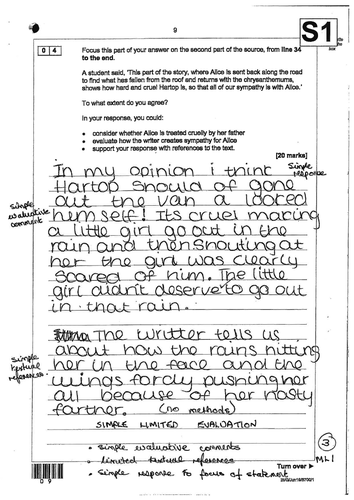 9
S1
0 4
Focus this part of your answer on the second part of the source, from line 34
to the end.
A student said, 'This part of the story, where Alice is sent back along the road
to find what has fallen from the roof and returns with the chrysanthemums,
shows how hard and cruel Hartop is, so that all of our sympathy is with Alice.'
To what extent do you agree?
In your response, you could:
• consider whether Alice is treated cruelly by her father
• evaluate how the writer creates sympathy for Alice
• support your response with references to the text.
[20 marks]
In my opinion i think
simple response
Hartop should of gone
out the van a looked
simple evaluative comment
himself! Its cruel making
a little girl go out in the
rain and then shouting at
her the girl was clearly
scared of him. The little
girl didn't deserve to go out
in that rain.
The writter tells us
about how the rains hitting
simple textual references
her in the face and the
wings fordy pushing her
all because of her nasty
farther.
(no methods)
SIMPLE LIMITED EVALUATION
• simple evaluative comments
• limited textual references
• simple response to focus of statement
3
Turn over ►
0 9